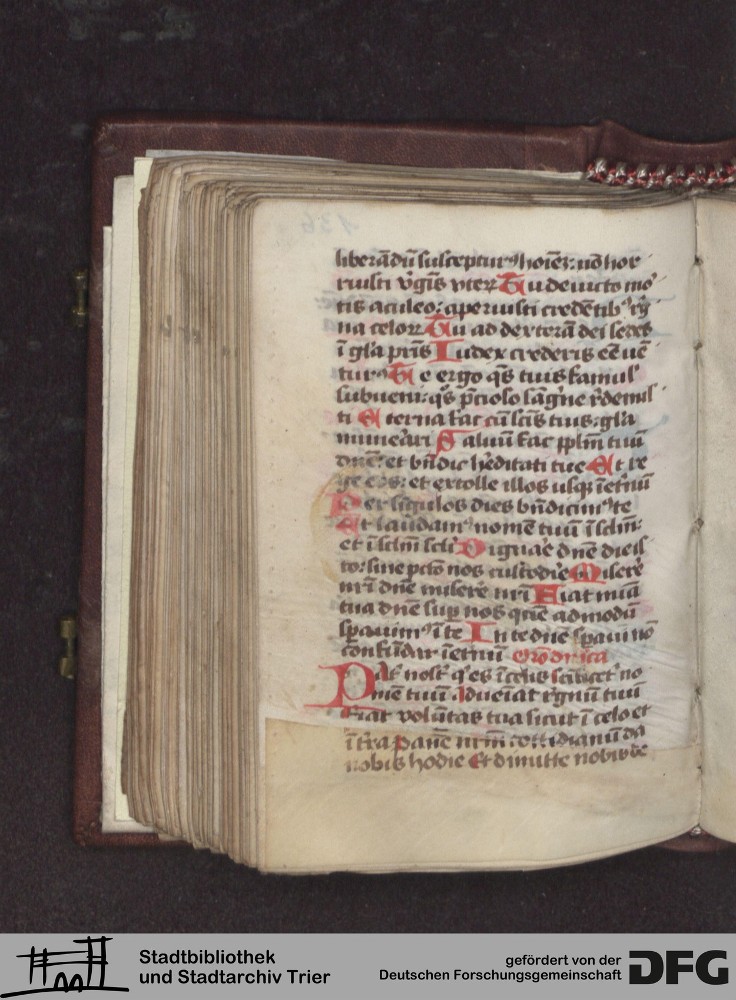 liberādū suscepturꝰ hoiēz: nō hor
ruisti v̓gīs vterꝝ Tu deuicto mo
tis aculeo: aperuisti credētibꝰ rḡ
na celorꝝ Tu ad dexterā dei sedes
ī gl̓a pr̄is Iudex crederis eē uē
turꝰ Te ergo qs̄ tuis famul̓
subueni: qs̄ p̄cioso sāg̓ne redemis
ti Eterna fac cū sc̄is tuis: gl̓a
munerari Saluū fac pplm̄ tuū
dn̄e: et bn̄dic h̓editati tue Et re
ge eos: et extolle illos usqꝫ ī et̓nū
Per sīgulos dies bn̄dicimꝰ te
Et laudamꝰ nomē tuū ī sclm̄:
et ī sclm̄ scl̓i Dignar̓e dn̄e die is
to: sine pctō nos custodir̓e Miser̓e
nr̄i dn̄e miser̓e nr̄i Fiat mīa
tua dn̄e suꝑ nos quē admodū
sp̄auimꝰ ī te In te dn̄e sp̄aui nō
confūdar ī et̓nū
Pat̓ nost̓ q̓ es ī celis scificet̓ no
mē tuū Adueīat rḡnū tuū
Fiat volūtas tua sicut ī celo et
ī t̓ra Panē nr̄m cottidianū da
nobis hodie Et dimitte nobis de
Stadtbibliothek
und Stadtarchiv Trier
gefördert von der
Deutschen Forschungsgemeinschaft
DFG